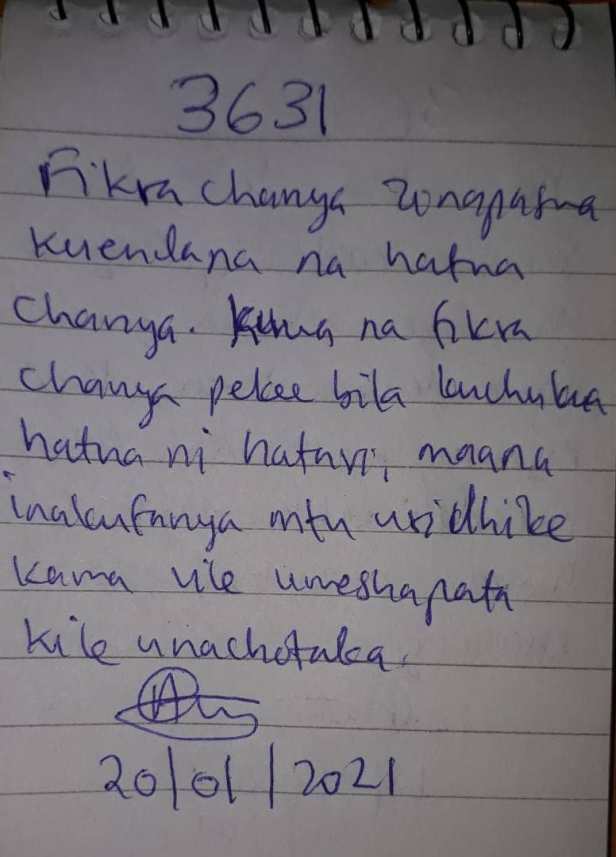 3631
Fikra chanya zinapaswa
kuendana na hatua
chanya. Kuwa na fikra
chanya pekee bila kuchukua
hatua ni hatari, maana
inakufanya mtu uridhike
kama vile umeshapata
kile unachotaka.
20/01/2021